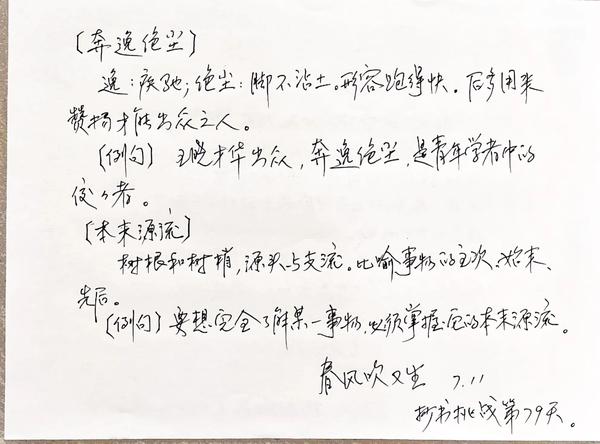 〔奔逸绝尘〕
逸：疾驰；绝尘：脚不沾土。形容跑得快。后多用来
赞扬才能出众之人。
〔例句〕王晓才华出众，奔逸绝尘，是青年学者中的
佼々者。
〔本末源流〕
树根和树梢，源头与支流。比喻事物的主次、始末、
先后。
〔例句〕要想完全了解某一事物，必须掌握它的本末源流。
春风吹又生 7.11
抄书挑战第79天。